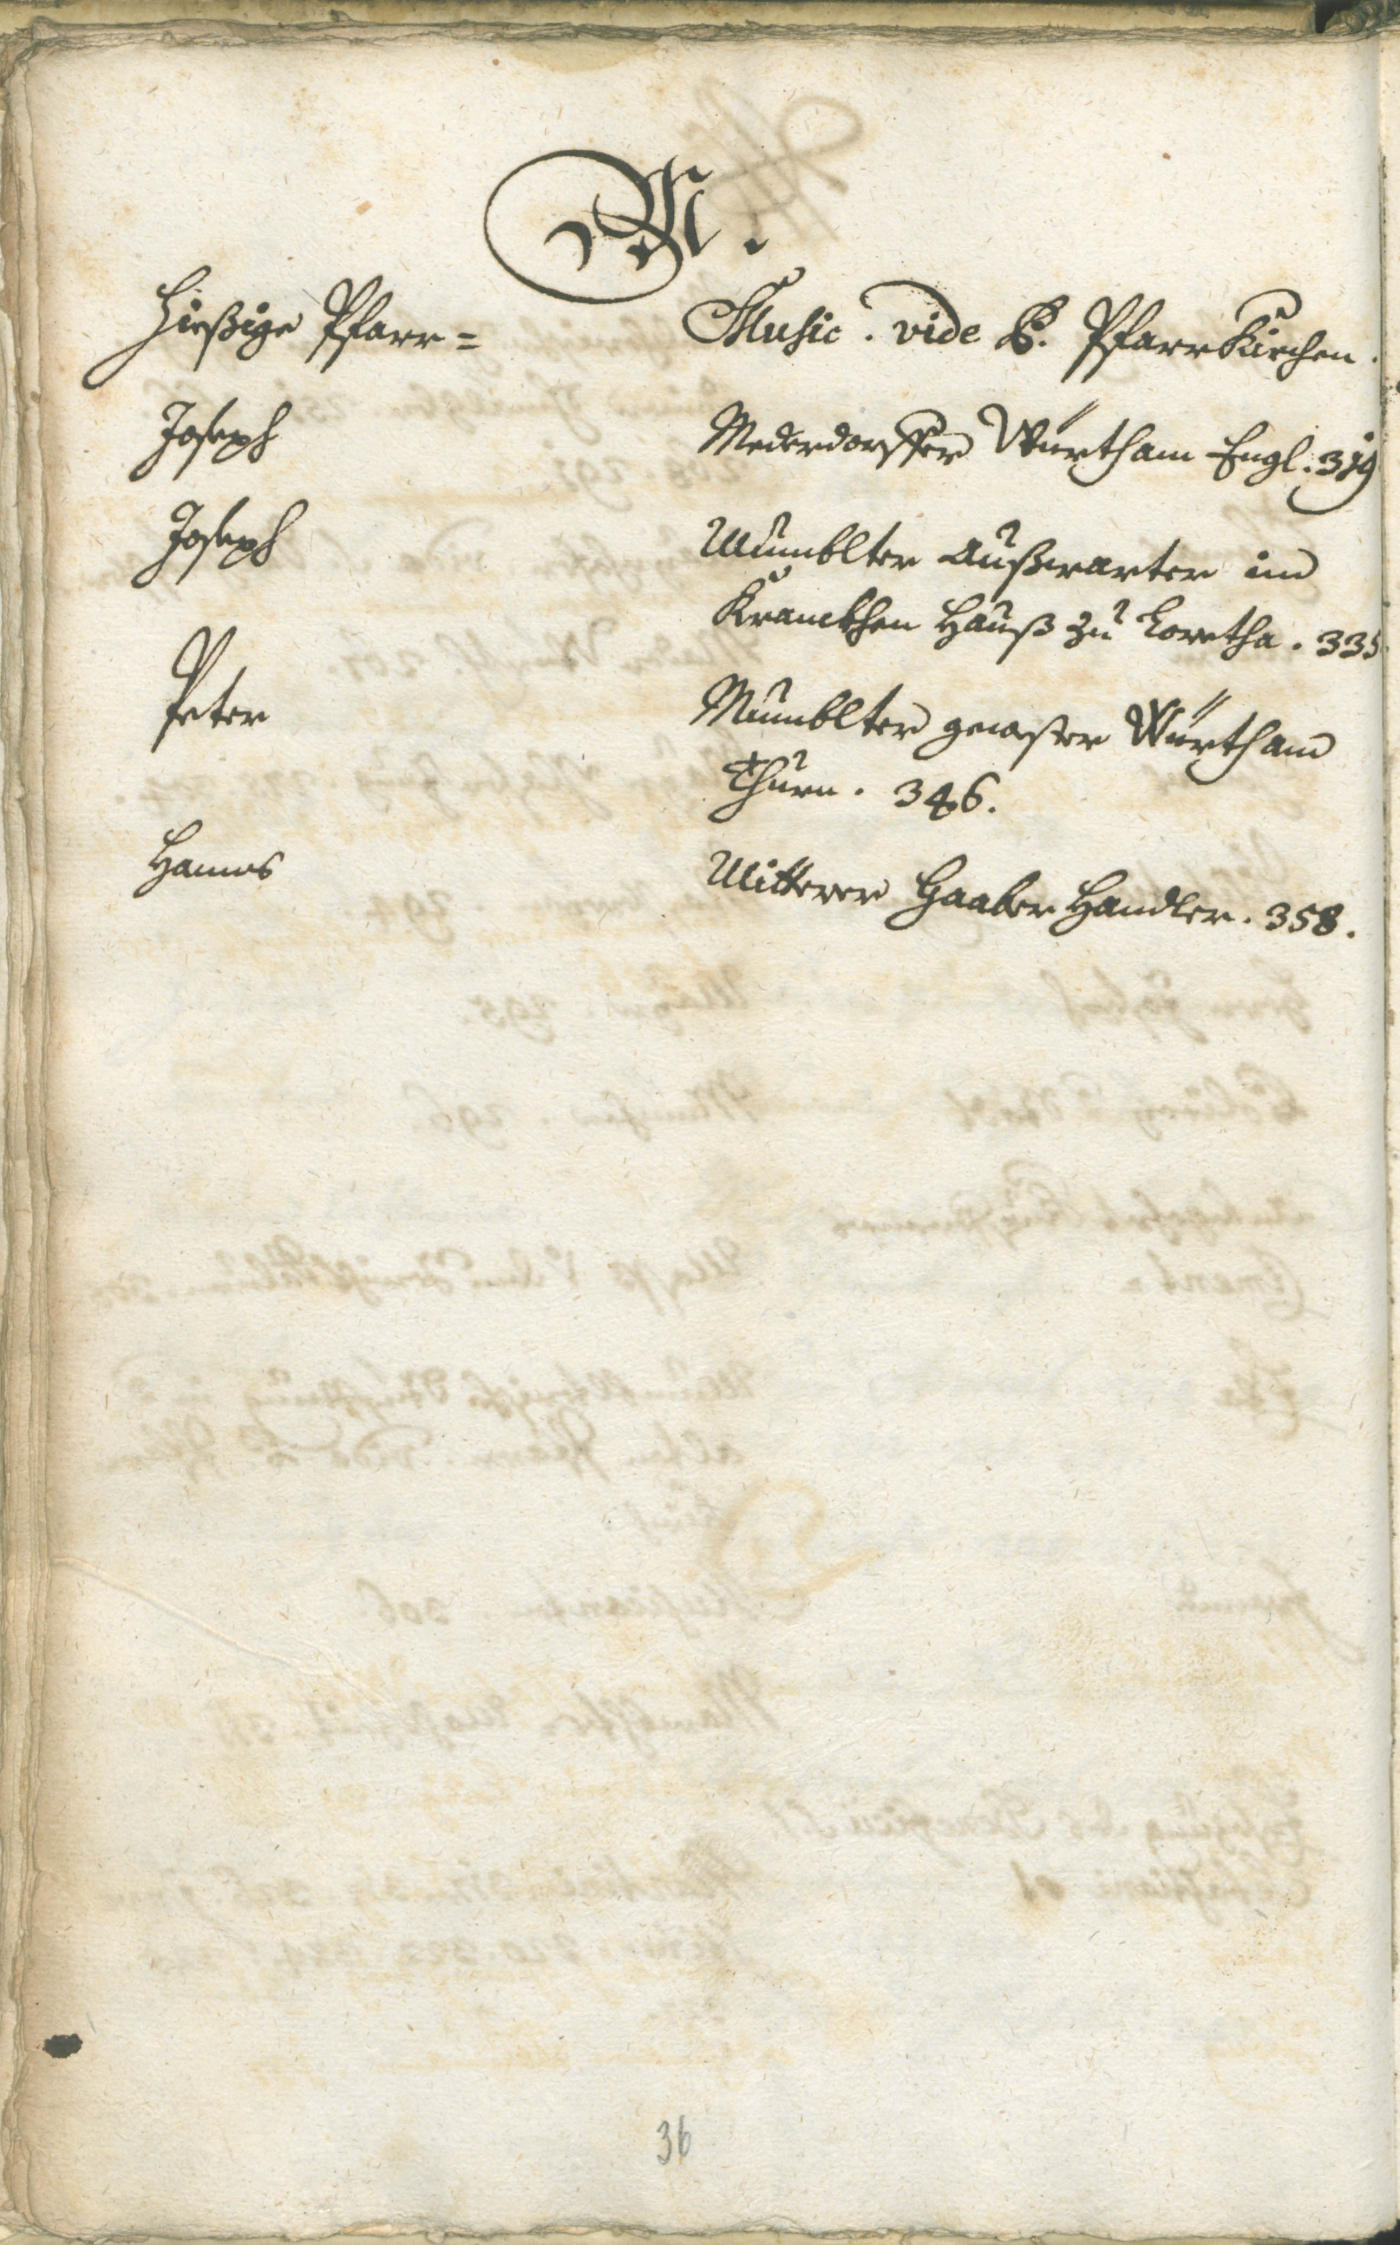 M.
Hießige Pfarr= Music. vide B. PfarrKirchen.
Joseph Mederdorffer Würth am Engl. 319
Joseph Mumblter Außwarter im
Kranckhen Hauß zu Loretha. 335
Peter Mumblter gewester Würth am
Thurn. 346.
Hannes Mitterer Haaber Handler. 358.
36